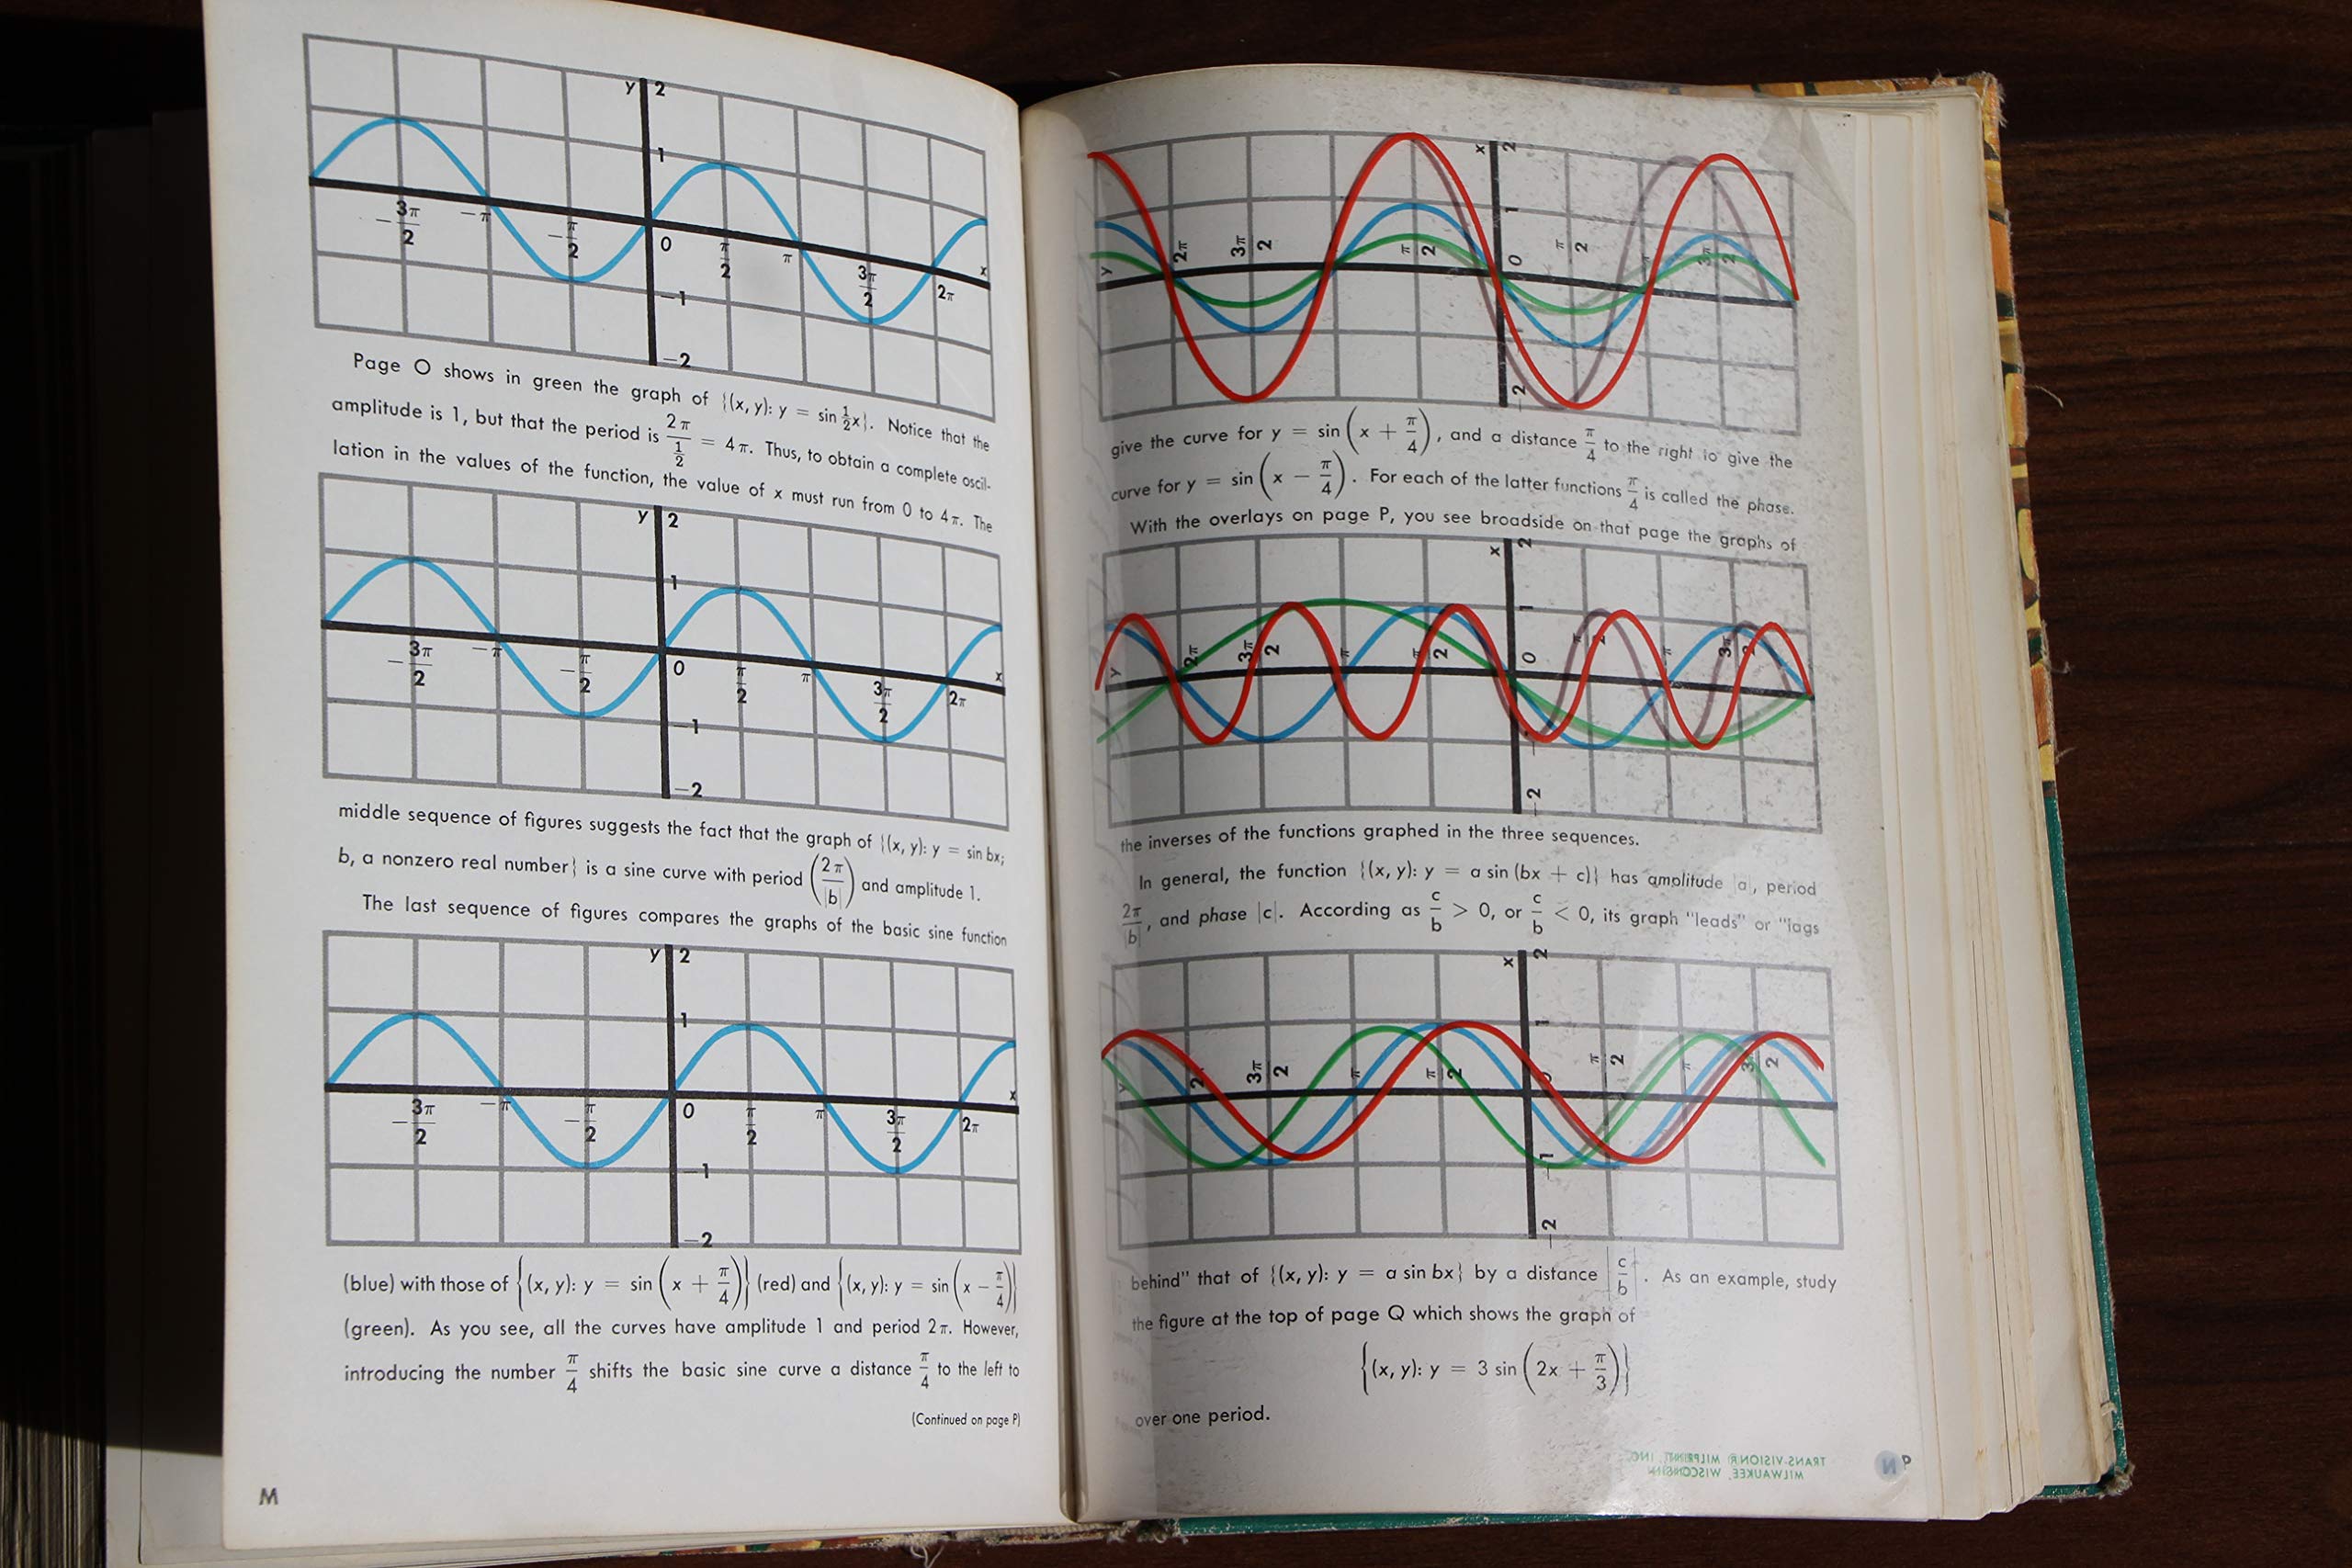 y 2
1
−3π/2 −π −π/2 0 π/2 π 3π/2 2π x
−1
−2
Page O shows in green the graph of {(x, y): y = sin ½x}. Notice that the
amplitude is 1, but that the period is 2π/(1/2) = 4π. Thus, to obtain a complete oscil-
lation in the values of the function, the value of x must run from 0 to 4π. The
y 2
1
−3π/2 −π −π/2 0 π/2 π 3π/2 2π x
−1
−2
middle sequence of figures suggests the fact that the graph of {(x, y): y = sin bx;
b, a nonzero real number} is a sine curve with period (2π/|b|) and amplitude 1.
The last sequence of figures compares the graphs of the basic sine function
y 2
1
−3π/2 −π −π/2 0 π/2 π 3π/2 2π x
−1
−2
(blue) with those of {(x, y): y = sin (x + π/4)} (red) and {(x, y): y = sin (x − π/4)}
(green). As you see, all the curves have amplitude 1 and period 2π. However,
introducing the number π/4 shifts the basic sine curve a distance π/4 to the left to
(Continued on page P)
M
x 2
1
y 2π 3π/2 π/2 0 π/2 3π/2
−2
give the curve for y = sin (x + π/4), and a distance π/4 to the right to give the
curve for y = sin (x − π/4). For each of the latter functions π/4 is called the phase.
With the overlays on page P, you see broadside on that page the graphs of
x 2
1
y 2π 3π/2 π π/2 0 π/2 π 3π/2
−2
the inverses of the functions graphed in the three sequences.
In general, the function {(x, y): y = a sin (bx + c)} has amplitude |a|, period
2π/|b|, and phase |c|. According as c/b > 0, or c/b < 0, its graph "leads" or "lags
x 2
1
y 3π/2 π π/2 0 π/2 π 3π/2
−1
−2
behind" that of {(x, y): y = a sin bx} by a distance |c/b|. As an example, study
the figure at the top of page Q which shows the graph of
{(x, y): y = 3 sin (2x + π/3)}
over one period.
TRANS-VISION® MILPRINT, INC.
MILWAUKEE, WISCONSIN
N P